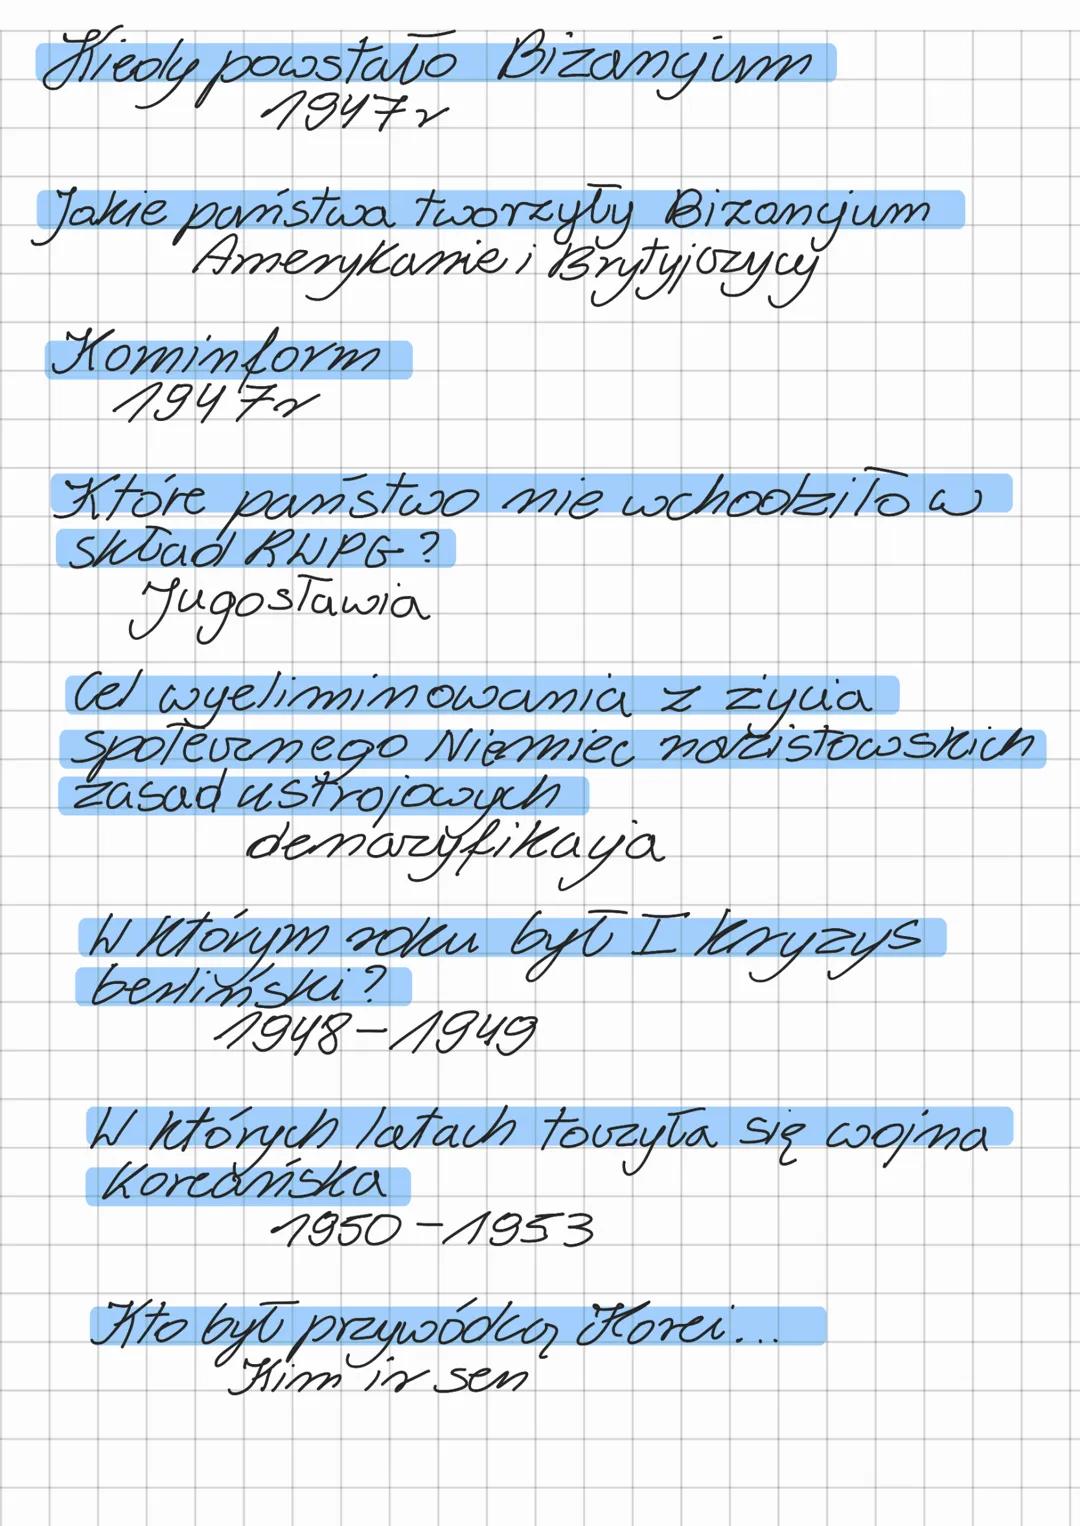 Kiedy powstało Bizancjum
1947r
Jakie państwa tworzyły Bizancjum
Amerykanie i Brytyjczycy
Kominform
1947r
Które państwo nie wchodziło w
skład RWPG?
Jugosławia
Cel wyeliminowania z życia
społecznego Niemiec nazistowskich
zasad ustrojowych
denazyfikacja
W którym roku był I kryzys
berliński?
1948-1949
W których latach toczyła się wojna
Koreańska
1950-1953
Kto był przywódcą Korei...
Kim ir sen